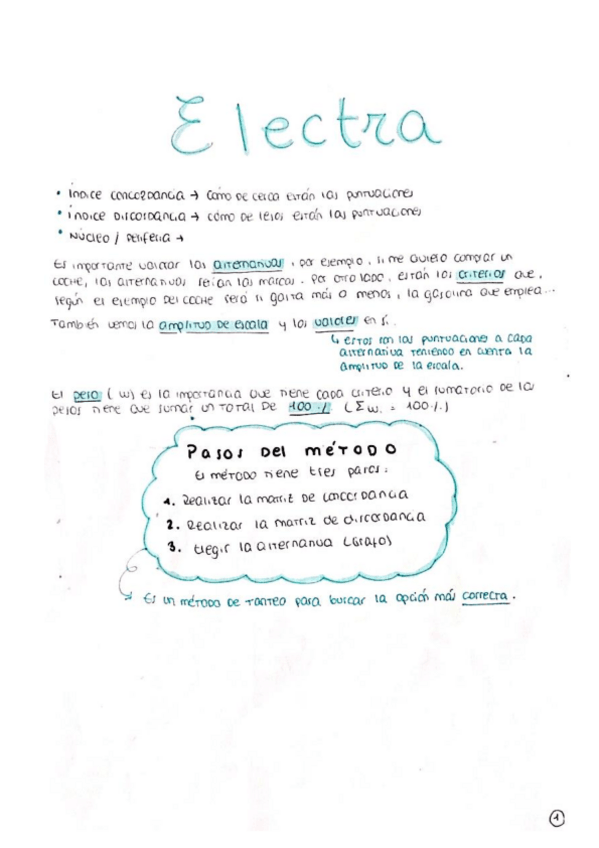 Electra
• Índice concordancia → como de cerca están las puntuaciones
• índice discordancia → cómo de lejos están las puntuaciones
• Núcleo / Periferia →
Es importante valorar las alternativas, por ejemplo, si me quiero comprar un
coche, las alternativas serían las marcas. Por otro lado, están los criterios que,
según el ejemplo del coche será si gasta más o menos, la gasolina que emplea...
También vemos la amplitud de escala y los valores en sí.
↳ estos son las puntuaciones a cada
alternativa teniendo en cuenta la
amplitud de la escala.
El peso (w) es la importancia que tiene cada criterio y el sumatorio de los
pesos tiene que sumar un total de 100% (Σwᵢ = 100%)
Pasos del método
El método tiene tres pasos:
1. Realizar la matriz de concordancia
2. Realizar la matriz de discordancia
3. Elegir la alternativa (Grafo)
Es un método de tanteo para buscar la opción más correcta.
1